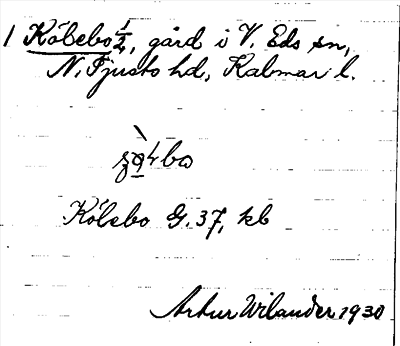 1 Kölsebo ½, gård i V. Eds sn,
N. Tjusts hd, Kalmar l.
Kölsebo G. 37, kb
Artur Wilander 1930